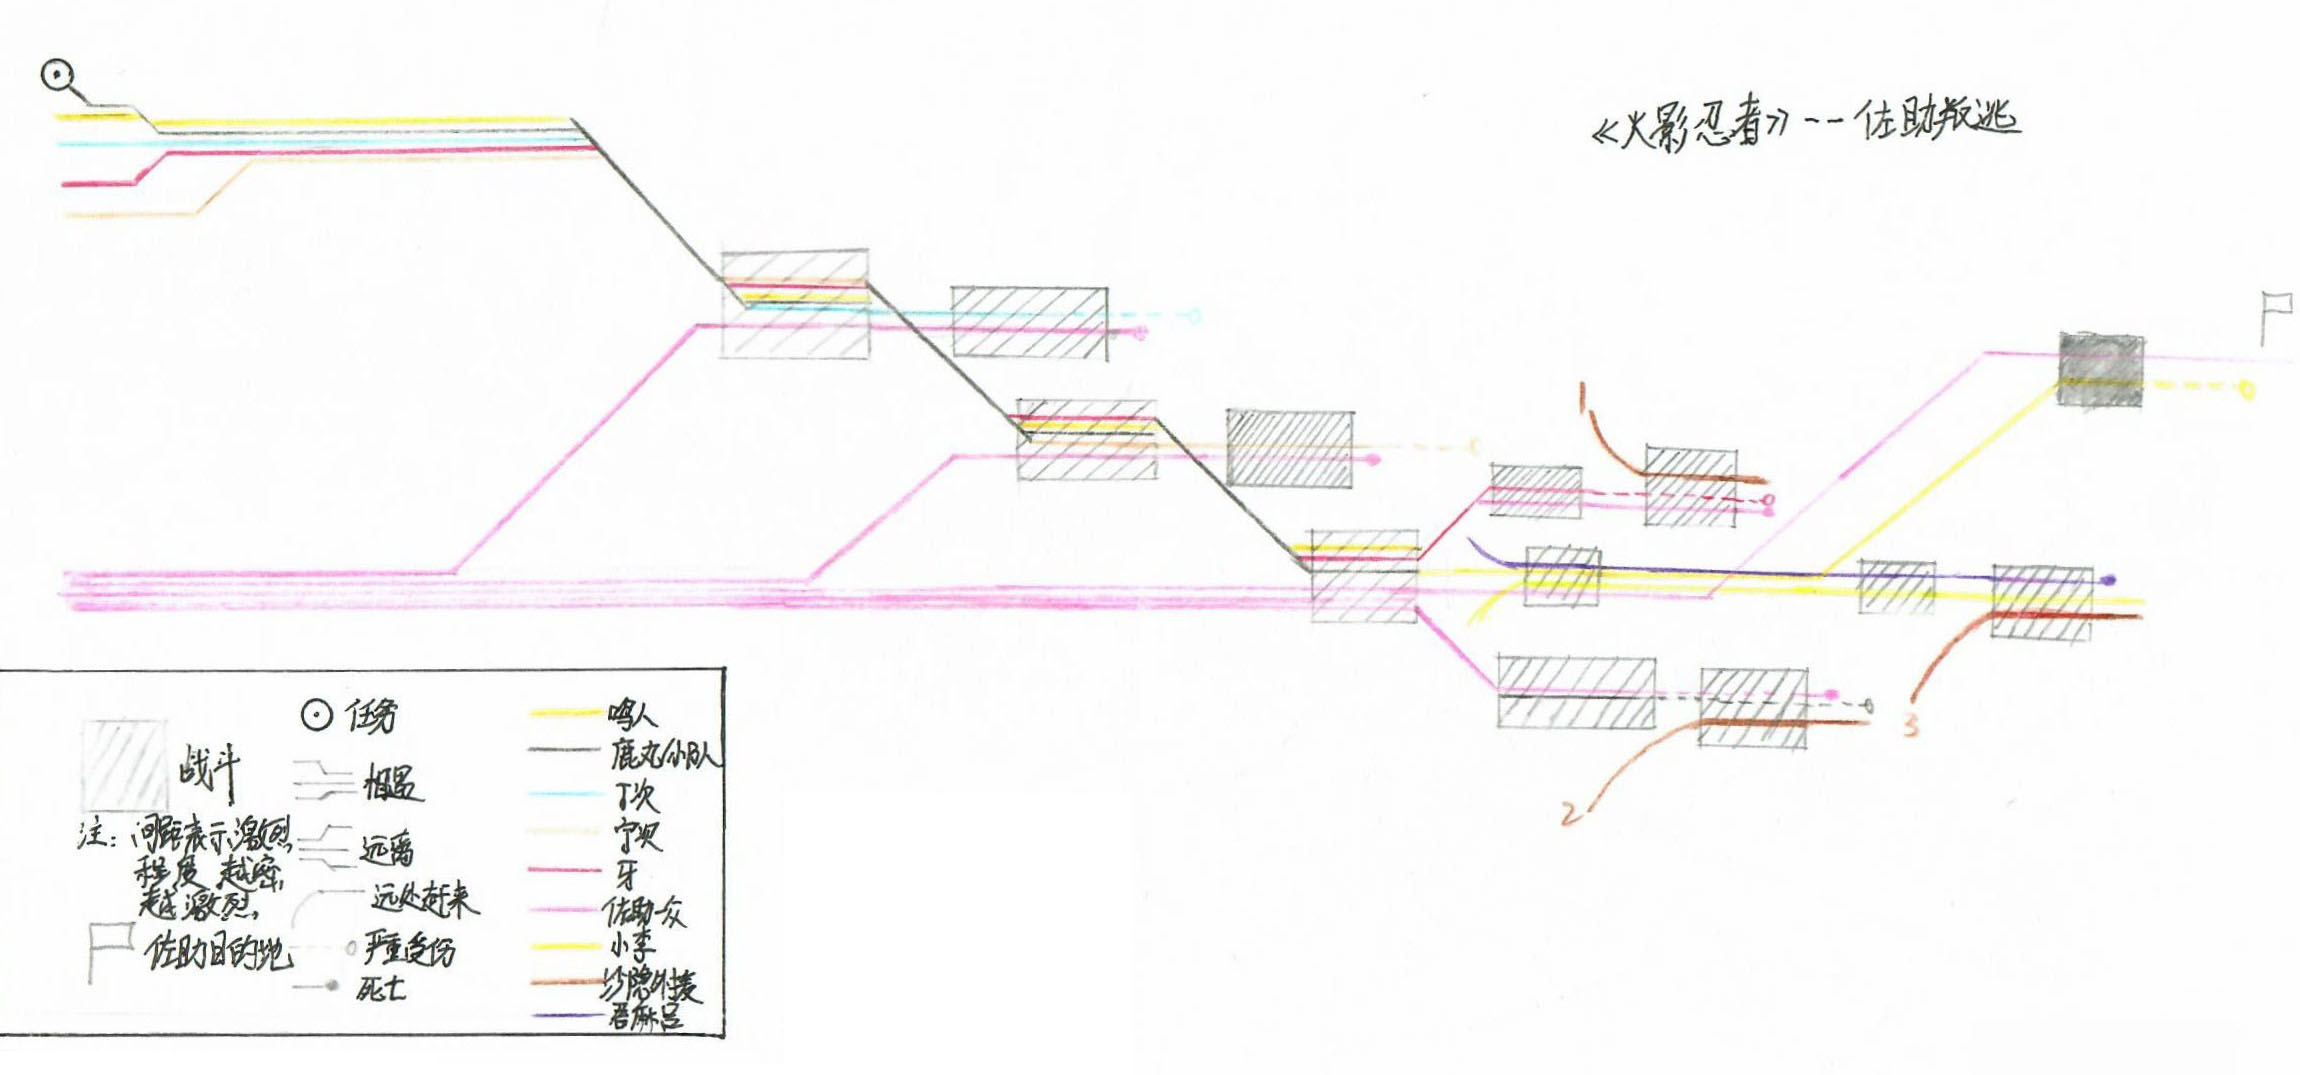 《火影忍者》--佐助叛逃
1
2
3
战斗
注：间距表示激烈
程度，越密，
越激烈，
佐助目的地
任务
相遇
远离
远处赶来
严重受伤
死亡
鸣人
鹿丸/小队
丁次
宁次
牙
佐助一众
小李
沙隐外援
君麻吕